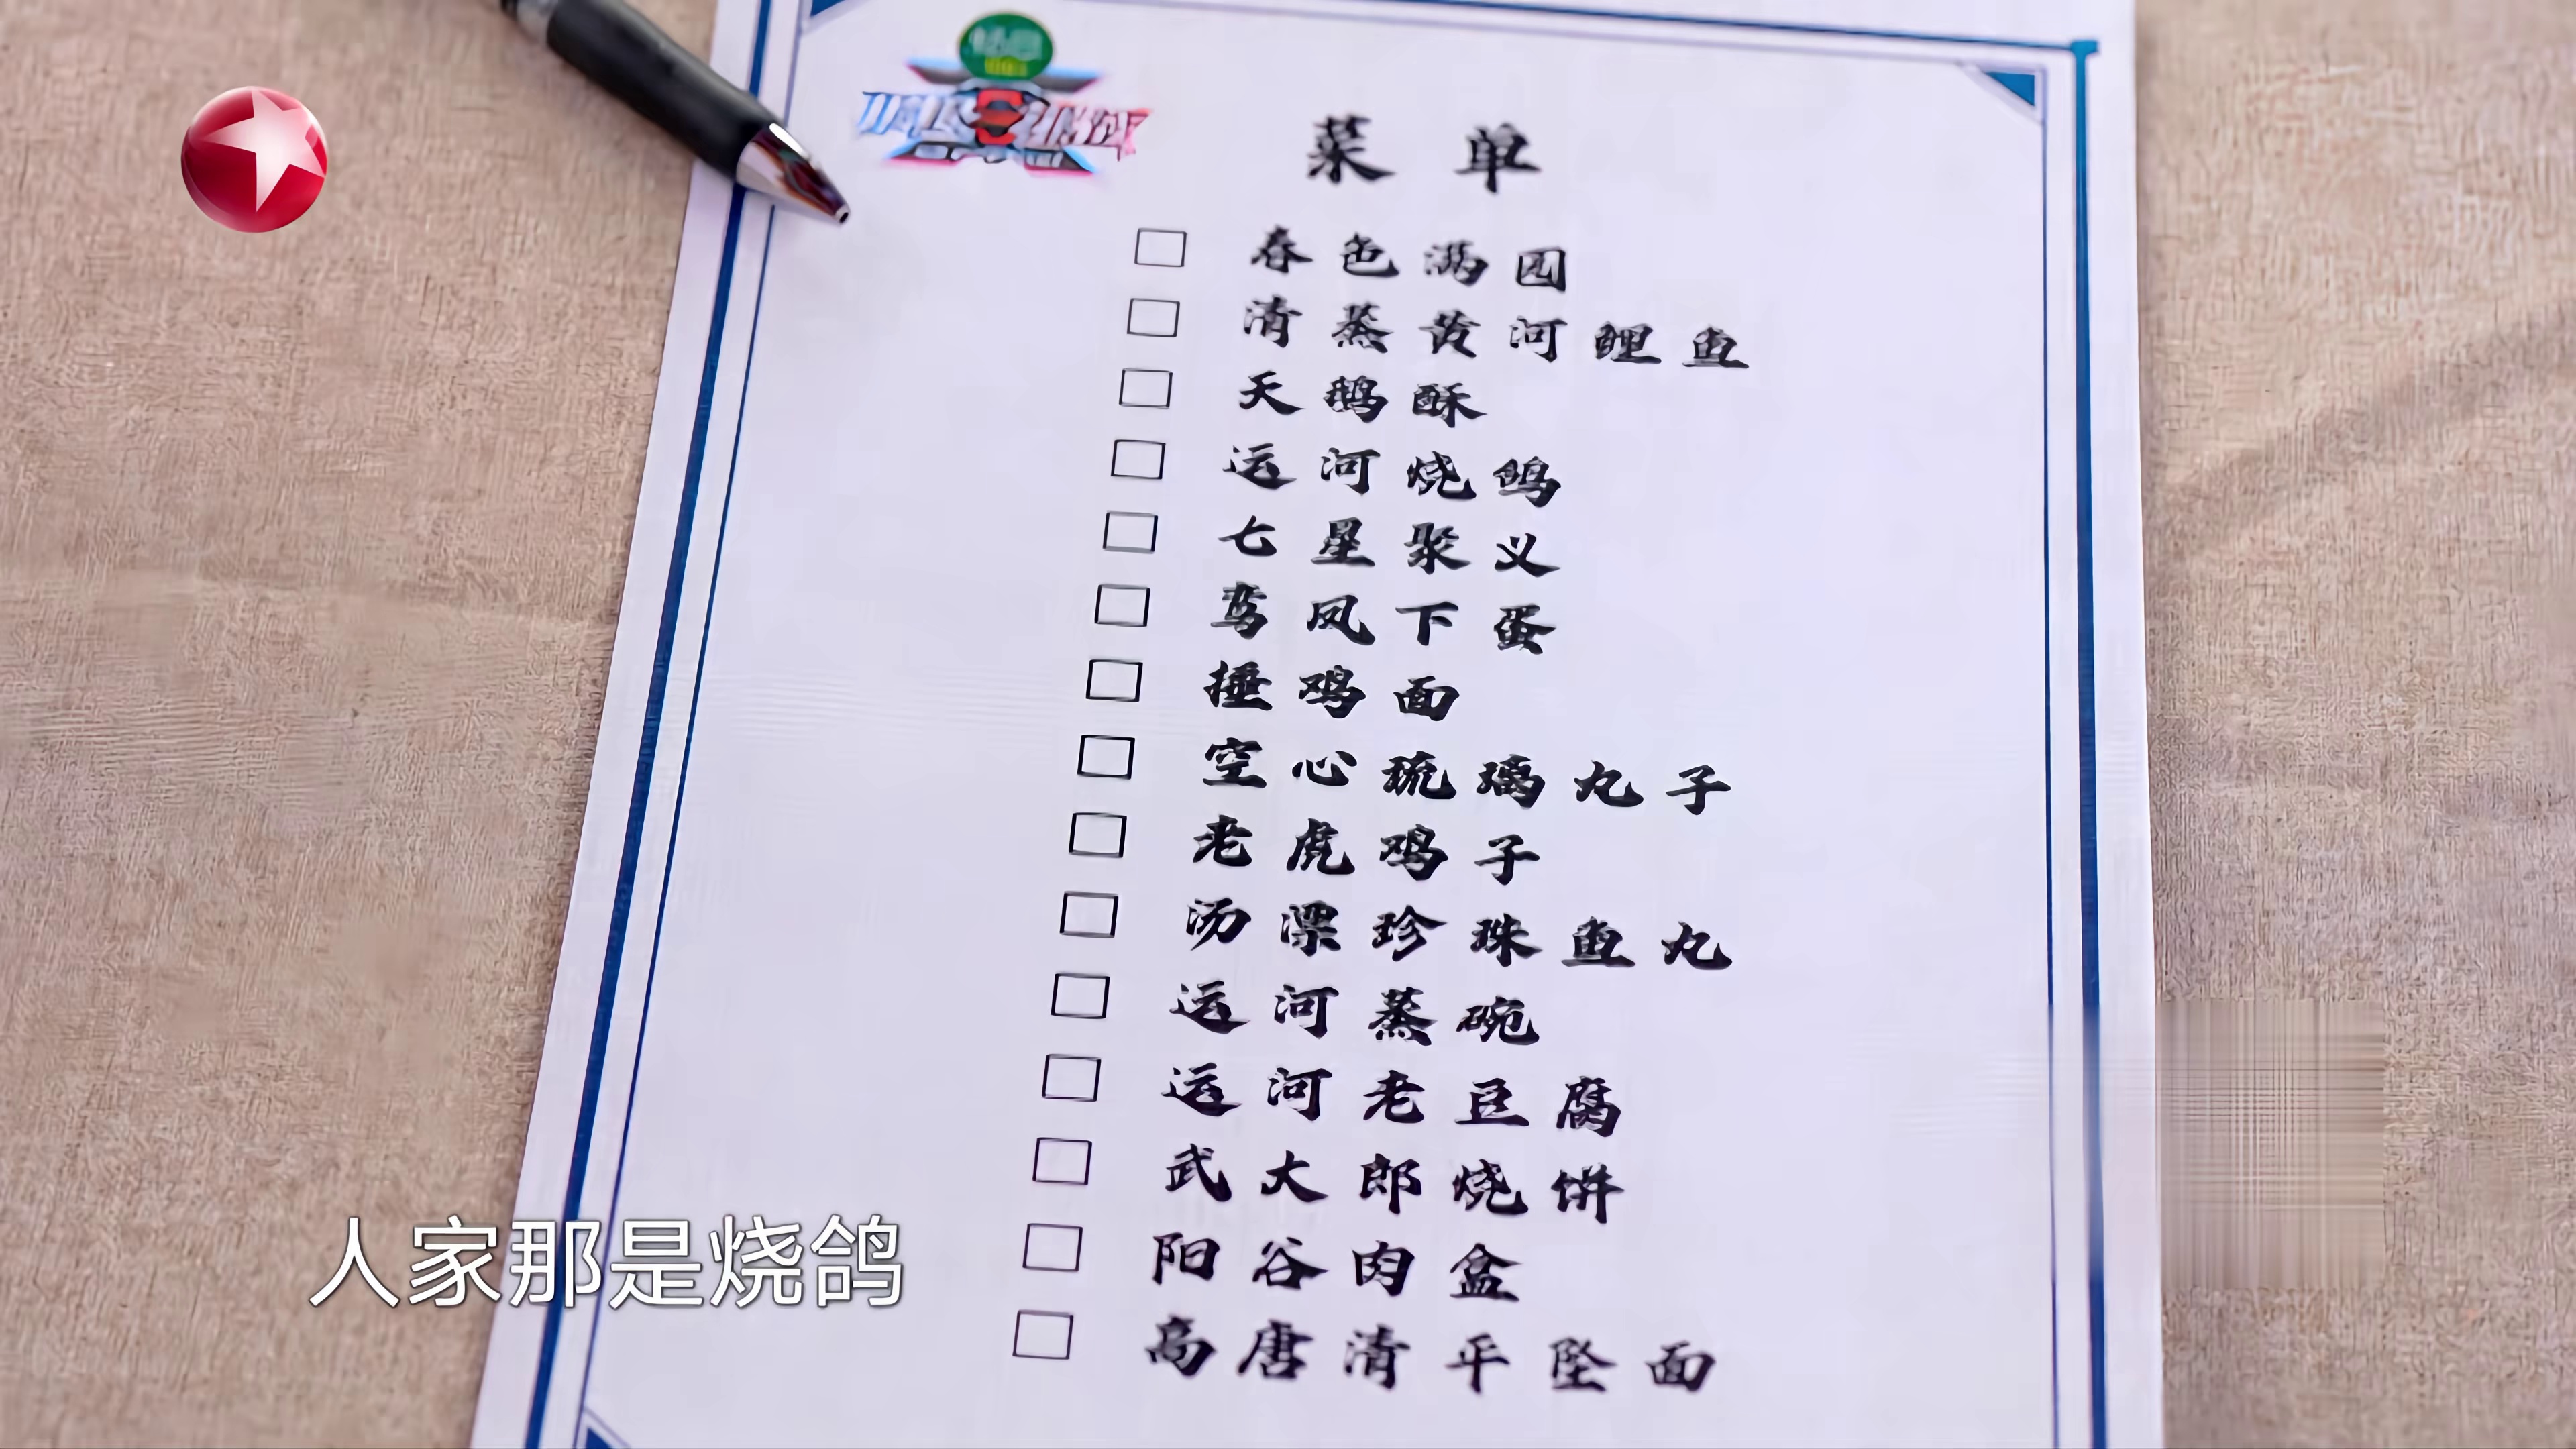 菜单
春色满园
清蒸黄河鲤鱼
天鹅酥
运河烧鸽
七星聚义
鸾凤下蛋
捶鸡面
空心琉璃丸子
老虎鸡子
汤漂珍珠鱼丸
运河蒸碗
运河老豆腐
武大郎烧饼
阳谷肉盒
高唐清平坠面
人家那是烧鸽